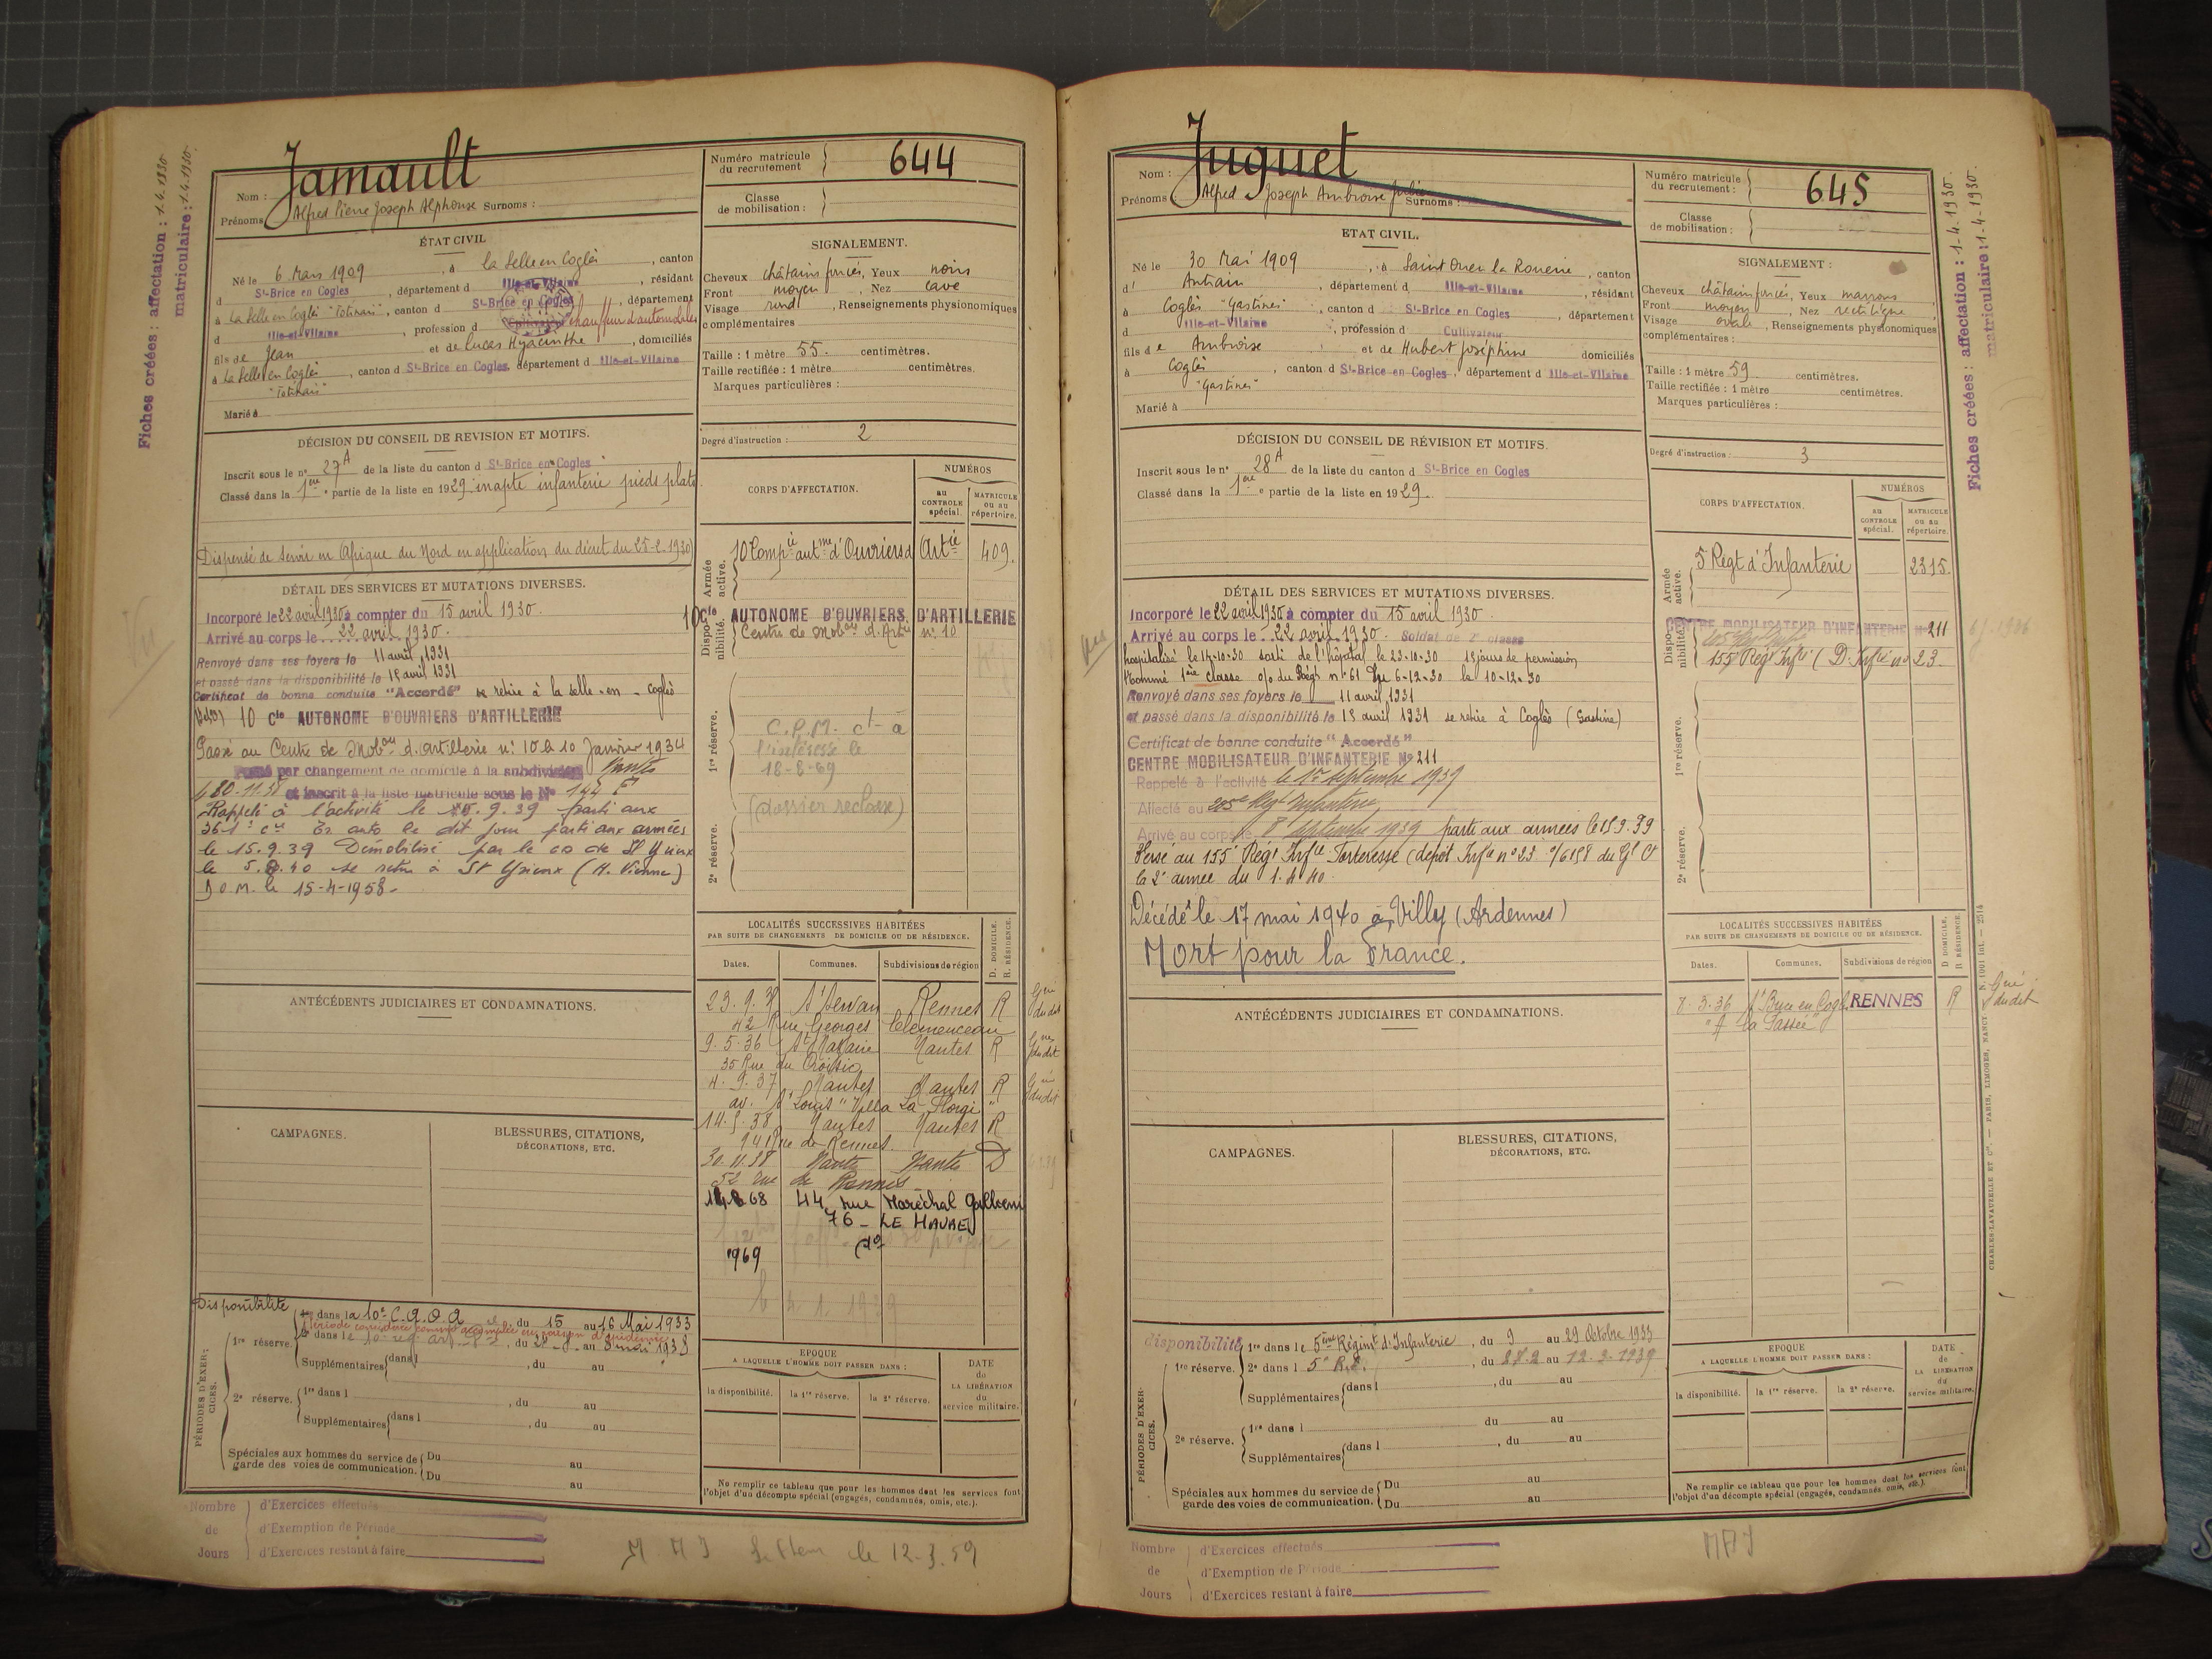 Fiches créées : affectation : 1.4.1930.
matriculaire : 1.4.1930.
Nom : Jamault
Prénoms Alfred Pierre Joseph Alphonse Surnoms :
Numéro matricule du recrutement 644
Classe de mobilisation :
ÉTAT CIVIL
Né le 6 Mars 1909, à La Selle en Coglès, canton
d St-Brice en Cogles, département d Ille-et-Vilaine, résidant
à La Selle en Coglès, canton d St-Brice en Cogles, département
d Ille-et-Vilaine, profession d chauffeur d'automobiles
fils de Jean et de Lucas Hyacinthe, domiciliés
à La Selle en Coglès, canton d St-Brice en Cogles, département d Ille-et-Vilaine
Marié à
SIGNALEMENT.
Cheveux châtains foncés, Yeux noirs
Front moyen, Nez cave
Visage rond, Renseignements physionomiques
complémentaires
Taille : 1 mètre 55. centimètres.
Taille rectifiée : 1 mètre centimètres.
Marques particulières :
Degré d'instruction : 2
DÉCISION DU CONSEIL DE REVISION ET MOTIFS.
Inscrit sous le n° 27A de la liste du canton d St-Brice en Cogles
Classé dans la 1ère partie de la liste en 1929 inapte infanterie pieds plats
Dispensé de servir en Afrique du Nord en application du décret du 25-2.1930)
DÉTAIL DES SERVICES ET MUTATIONS DIVERSES.
Incorporé le 22 avril 1930 à compter du 15 avril 1930.
Arrivé au corps le 22 avril 1930.
Renvoyé dans ses foyers le 11 avril 1931
et passé dans la disponibilité le 15 avril 1931
Certificat de bonne conduite "Accordé" se retire à la Selle-en-Coglès
10 Cie AUTONOME D'OUVRIERS D'ARTILLERIE
Passé au Centre de Mobon d'artillerie n° 10 le 10 Janvier 1934
Passé par changement de domicile à la subdivision Nantes
et inscrit à la liste matricule sous le N° 144
Rappelé à l'activité le 9.39 parti aux
le dit jour parti aux armées
le 15.9.39 Démobilisé par le de St Yrieix
le 5.8.40 se retire à St Yrieix (H. Vienne)
D O M. le 15-4-1958-
CORPS D'AFFECTATION.
NUMÉROS
au CONTROLE spécial.
MATRICULE ou au répertoire.
Armée active.
10 Compie autme d'Ouvriers d'Artie 409.
Disponibilité.
10 Cie AUTONOME D'OUVRIERS D'ARTILLERIE
Centre de Mobon d'Artie n° 10
1re réserve.
C.P.M. ct-a
l'intéressé le
18-8-69
(dossier reclassé)
2e réserve.
LOCALITÉS SUCCESSIVES HABITÉES
PAR SUITE DE CHANGEMENTS DE DOMICILE OU DE RÉSIDENCE.
D. DOMICILE. R. RÉSIDENCE.
Dates. Communes. Subdivisions de région
23.9. St Servan Rennes R
42 Rue Georges Clemenceau
9.5.36 St Nazaire Nantes R
35 Rue du Croisic
4.9.37 Nantes Nantes R
av. St Louis "Villa La
14.5.38 Nantes Nantes R
Rue de Rennes.
30.11.38 Nantes Nantes D
52 rue de Rennes
68 44, rue Maréchal Gallieni
76 - LE HAVRE
1969 do
4.1.1939
ANTÉCÉDENTS JUDICIAIRES ET CONDAMNATIONS.
CAMPAGNES.
BLESSURES, CITATIONS, DÉCORATIONS, ETC.
PÉRIODES D'EXERCICES.
Disponibilité
1re réserve. 1re dans la 10e C.A.O.A du 15 au 16 Mai 1933
Période considérée comme accomplie en raison d'épidémie
2e dans le 10e rég. art. du au mai 1938
Supplémentaires dans l , du au
2e réserve. 1re dans l , du au
Supplémentaires dans l , du au
Spéciales aux hommes du service de garde des voies de communication. Du au
Du au
EPOQUE
A LAQUELLE L'HOMME DOIT PASSER DANS :
la disponibilité. la 1re réserve. la 2e réserve.
DATE de LA LIBÉRATION du service militaire.
Ne remplir ce tableau que pour les hommes dont les services font
l'objet d'un décompte spécial (engagés, condamnés, omis, etc.).
Nombre de Jours
d'Exercices effectués
d'Exemption de Période
d'Exercices restant à faire
le 12-3.59
Nom : Juguet
Prénoms Alfred Joseph Ambroise Surnoms :
Numéro matricule du recrutement : 645
Classe de mobilisation :
ETAT CIVIL.
Né le 30 Mai 1909, à Saint Ouen la Rouërie, canton
d' Antrain, département d Ille-et-Vilaine, résidant
à Coglès "Gastines", canton d St-Brice en Cogles, département
d Ille-et-Vilaine, profession d Cultivateur
fils de Ambroise et de Hubert Joséphine domiciliés
à Coglès, canton d St-Brice en Cogles, département d Ille-et-Vilaine
"Gastines"
Marié à
SIGNALEMENT :
Cheveux châtains foncés, Yeux marrons
Front moyen, Nez rectiligne
Visage ovale, Renseignements physionomiques
complémentaires :
Taille : 1 mètre 59 centimètres.
Taille rectifiée : 1 mètre centimètres.
Marques particulières :
Degré d'instruction : 3
DÉCISION DU CONSEIL DE RÉVISION ET MOTIFS.
Inscrit sous le n° 28A de la liste du canton d St-Brice en Cogles
Classé dans la 1ère partie de la liste en 1929.
DÉTAIL DES SERVICES ET MUTATIONS DIVERSES.
Incorporé le 22 avril 1930 à compter du 15 avril 1930.
Arrivé au corps le 22 avril 1930. Soldat de 2e classe
hospitalisé le 14-10-30 sorti de l'hôpital le 23-10-30 15 jours de permission
Nommé 1ère classe o/o du Régt n° 61 du 6-12-30 le 10-12-30
Renvoyé dans ses foyers le 11 avril 1931
et passé dans la disponibilité le 15 avril 1931 se retire à Coglès (Gastine)
Certificat de bonne conduite "Accordé"
CENTRE MOBILISATEUR D'INFANTERIE N° 211
Rappelé à l'activité le 1er septembre 1939
Affecté au Régt Infanterie
Arrivé au corps le 8 septembre 1939 parti aux armées le 15.9.39
Versé au 155e Régt Infie Forteresse (dépôt Infie n° 23 o/6158 du Gl Ct
la 2e armée du 1.4.40.
Décédé le 17 mai 1940 à Villy (Ardennes)
Mort pour la France.
CORPS D'AFFECTATION.
NUMÉROS
au CONTROLE spécial.
MATRICULE ou au répertoire.
Armée active.
5 Régt d'Infanterie 2315.
Disponibilité.
CENTRE MOBILISATEUR D'INFANTERIE N° 211
155e Régt Infie (D. Infie n° 23
1re réserve.
2e réserve.
LOCALITÉS SUCCESSIVES HABITÉES
PAR SUITE DE CHANGEMENTS DE DOMICILE OU DE RÉSIDENCE.
D. DOMICILE. R. RÉSIDENCE.
Dates. Communes. Subdivisions de région
7.3.36 St Brice en Cogles RENNES R
ANTÉCÉDENTS JUDICIAIRES ET CONDAMNATIONS.
CAMPAGNES.
BLESSURES, CITATIONS, DÉCORATIONS, ETC.
PÉRIODES D'EXERCICES.
disponibilité
1re réserve. 1re dans le 5ème Régiment d'Infanterie, du 9 au 29 Octobre 1933
2e dans l 5e R.I. , du 27.2 au 12.3.1939
Supplémentaires dans l , du au
2e réserve. 1re dans l du au
Supplémentaires dans l , du au
Spéciales aux hommes du service de garde des voies de communication. Du au
Du au
EPOQUE
A LAQUELLE L'HOMME DOIT PASSER DANS :
la disponibilité. la 1re réserve. la 2e réserve.
DATE de LA LIBÉRATION du service militaire.
Ne remplir ce tableau que pour les hommes dont les services font
l'objet d'un décompte spécial (engagés, condamnés, omis, etc.).
Nombre de Jours
d'Exercices effectués
d'Exemption de Période
d'Exercices restant à faire
Fiches créées : affectation : 1-4-1930.
matriculaire : 1-4-1930.
CHARLES-LAVAUZELLE ET Cie — PARIS, LIMOGES, NANCY